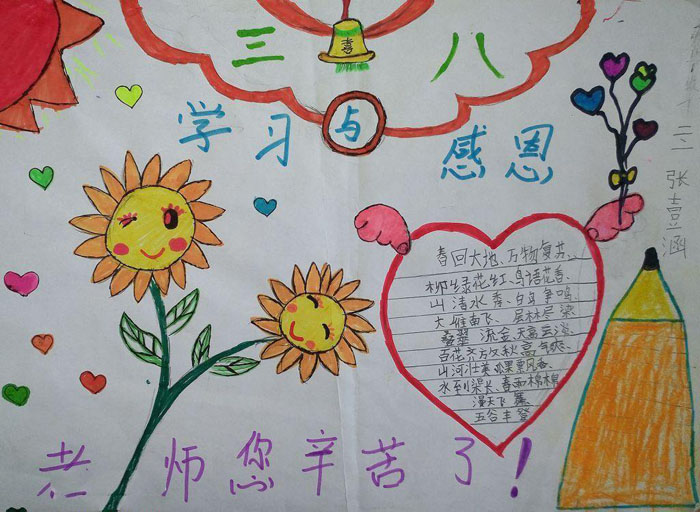 三八
喜
学习与感恩
三 张壹涵
春回大地、万物复苏、
柳绿花红、鸟语花香、
山清水秀、百鸟争鸣、
大雁南飞、层林尽染、
叠翠流金、天高云淡、
百花齐放、秋高气爽、
山河壮美、
水到渠长、春雨棉棉、
漫天飞舞
五谷丰登
老师您辛苦了！